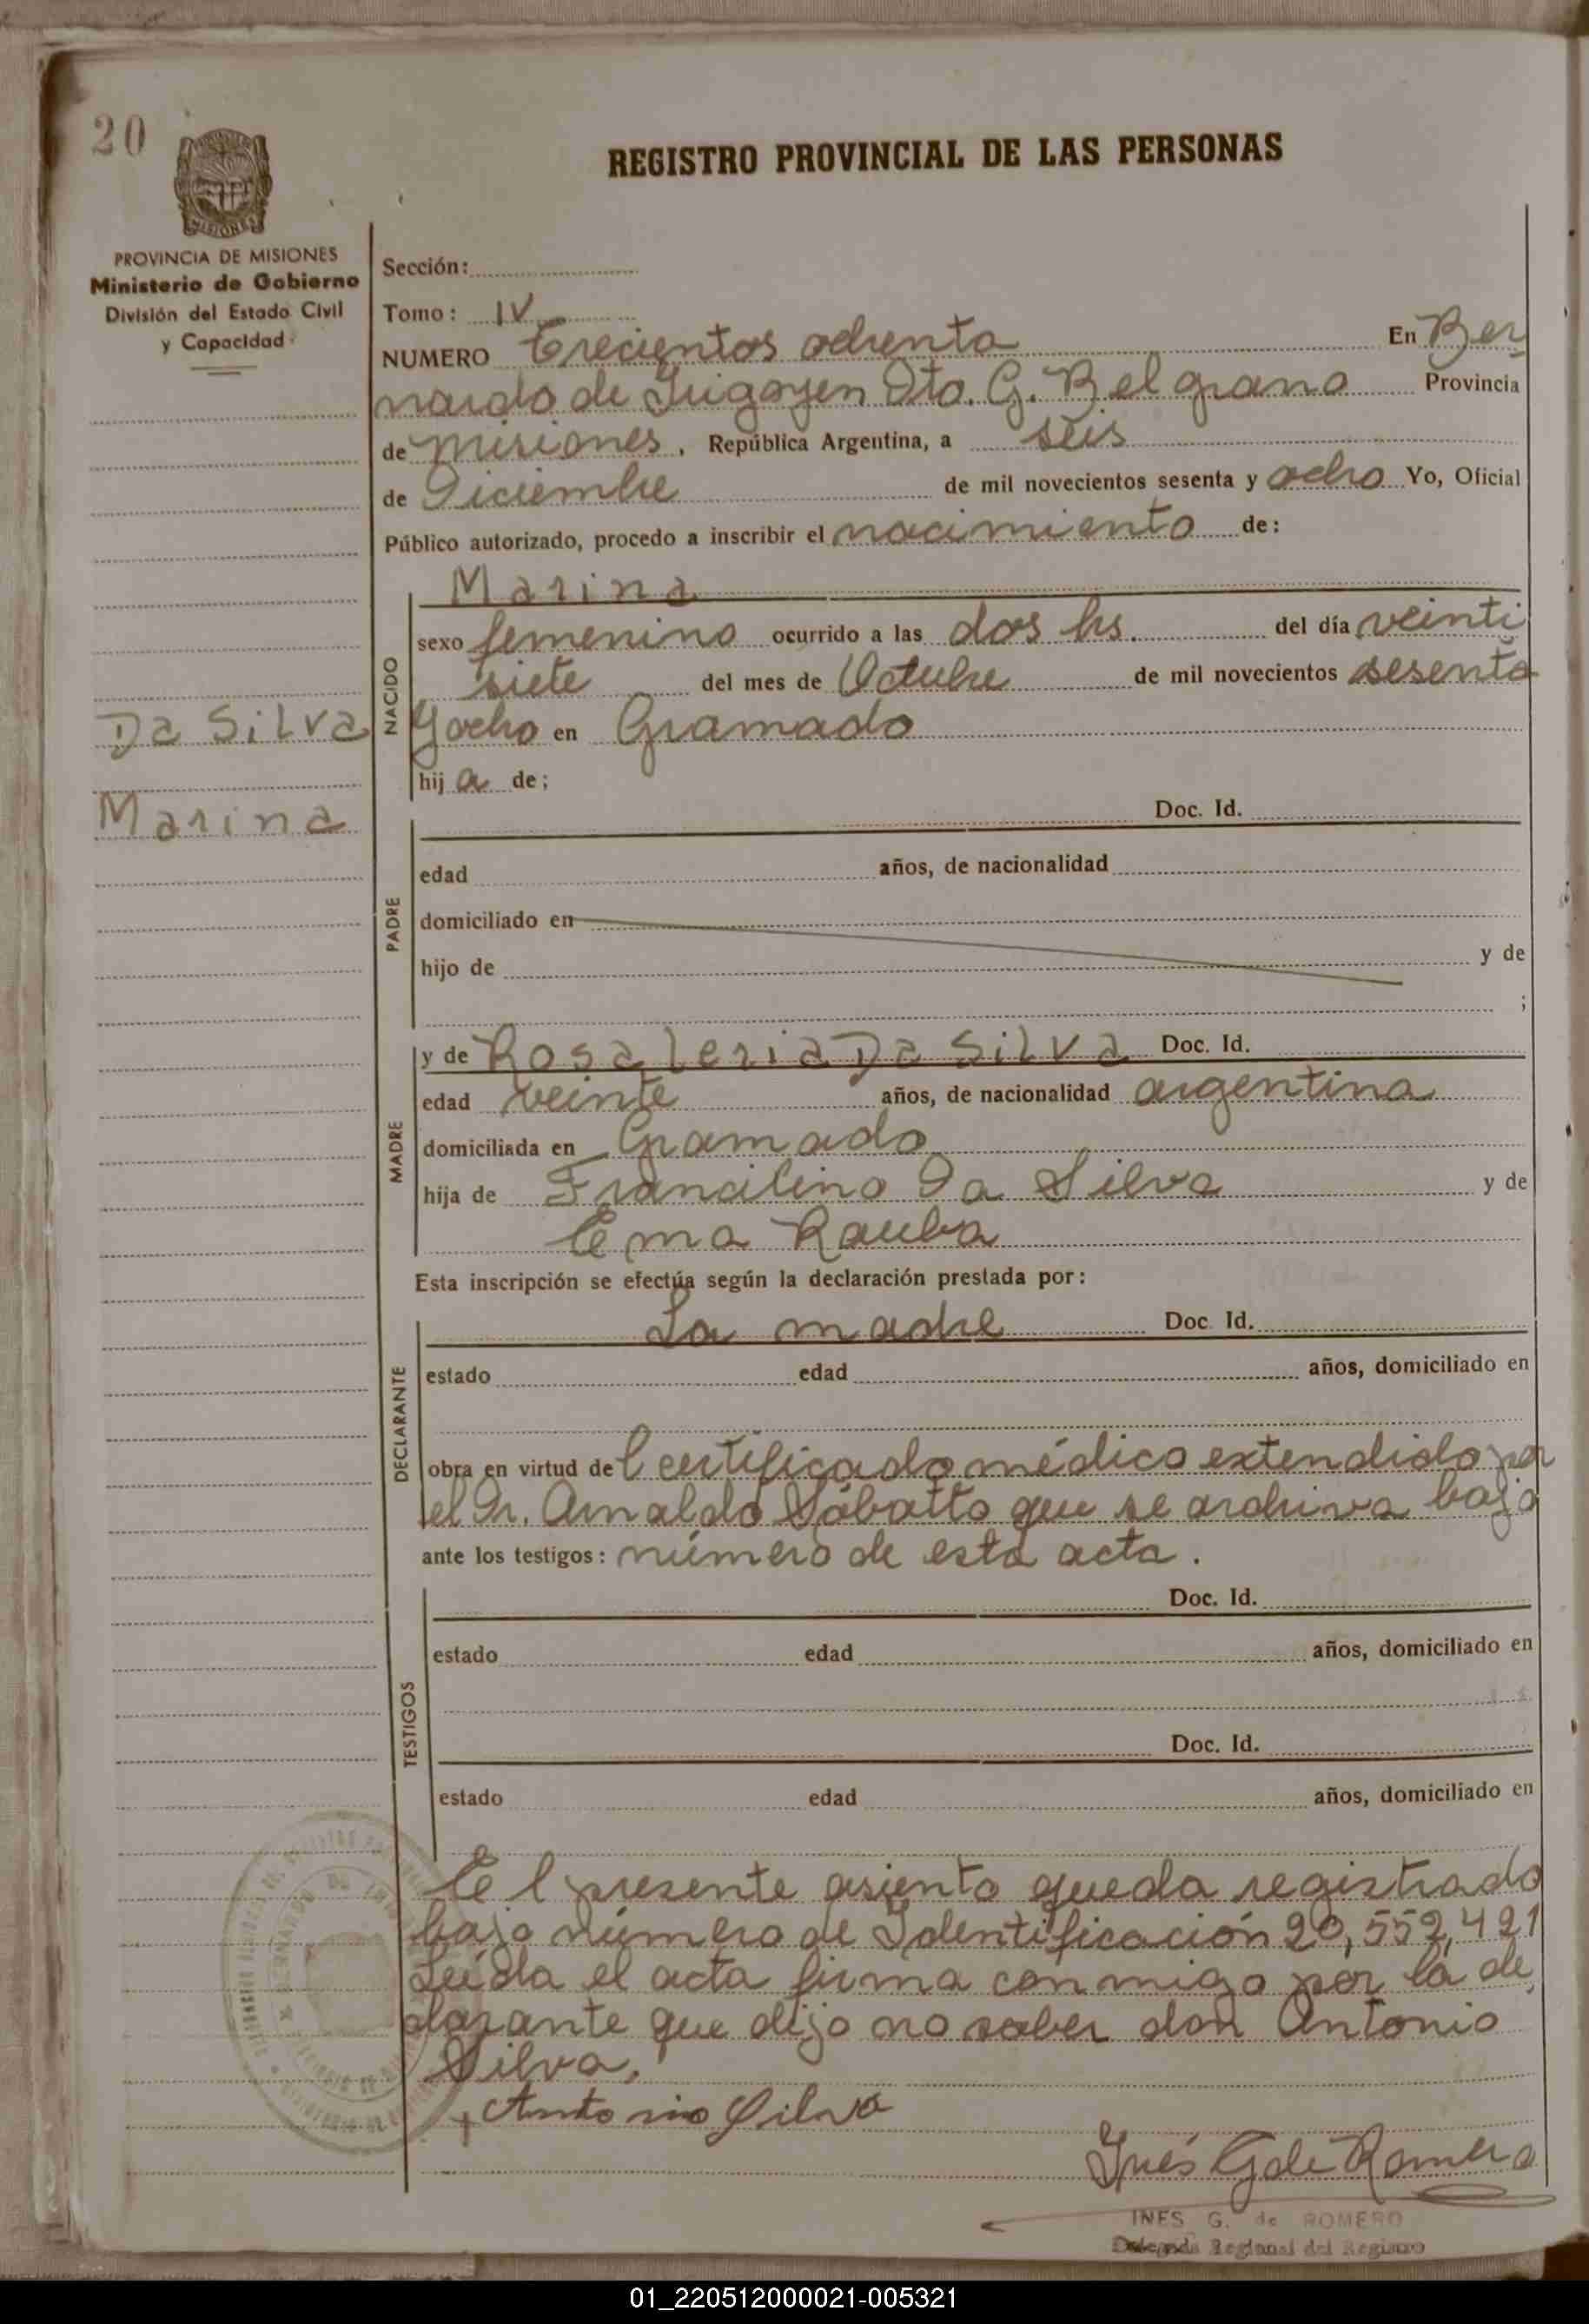 20
REGISTRO PROVINCIAL DE LAS PERSONAS
MISIONES
PROVINCIA DE MISIONES
Ministerio de Gobierno
División del Estado Civil
y Capacidad
Sección:
Tomo: IV
NUMERO Trecientos ochenta En Ber
nardo de Irigoyen Dto. G. Belgrano Provincia
de misiones, República Argentina, a seis
de Diciembre de mil novecientos sesenta y ocho Yo, Oficial
Público autorizado, procedo a inscribir el nacimiento de:
Marina
sexo femenino ocurrido a las dos hs. del día veinti
siete del mes de Octubre de mil novecientos sesenta
y ocho en Gramado
hija de;
NACIDO
Da Silva
Marina
Doc. Id.
edad años, de nacionalidad
domiciliado en
hijo de y de
;
PADRE
y de Rosa leria Da Silva Doc. Id.
edad veinte años, de nacionalidad argentina
domiciliada en Gramado
hija de Francilino Da Silva y de
Ema Rauba
MADRE
Esta inscripción se efectúa según la declaración prestada por:
La madre Doc. Id.
estado edad años, domiciliado en
obra en virtud del certificado médico extendido por
el Dr. Arnaldo Sábatto que se archiva bajo
ante los testigos: número de esta acta.
DECLARANTE
Doc. Id.
estado edad años, domiciliado en
Doc. Id.
estado edad años, domiciliado en
TESTIGOS
El presente asiento queda registrado
bajo número de Identificación 20,552,421
Leída el acta firma conmigo por la de
clarante que dijo no saber don Antonio
Silva.
Antonio Silva
Inés G de Romero
INES G. de ROMERO
Delegada Regional del Registro
01_220512000021-005321